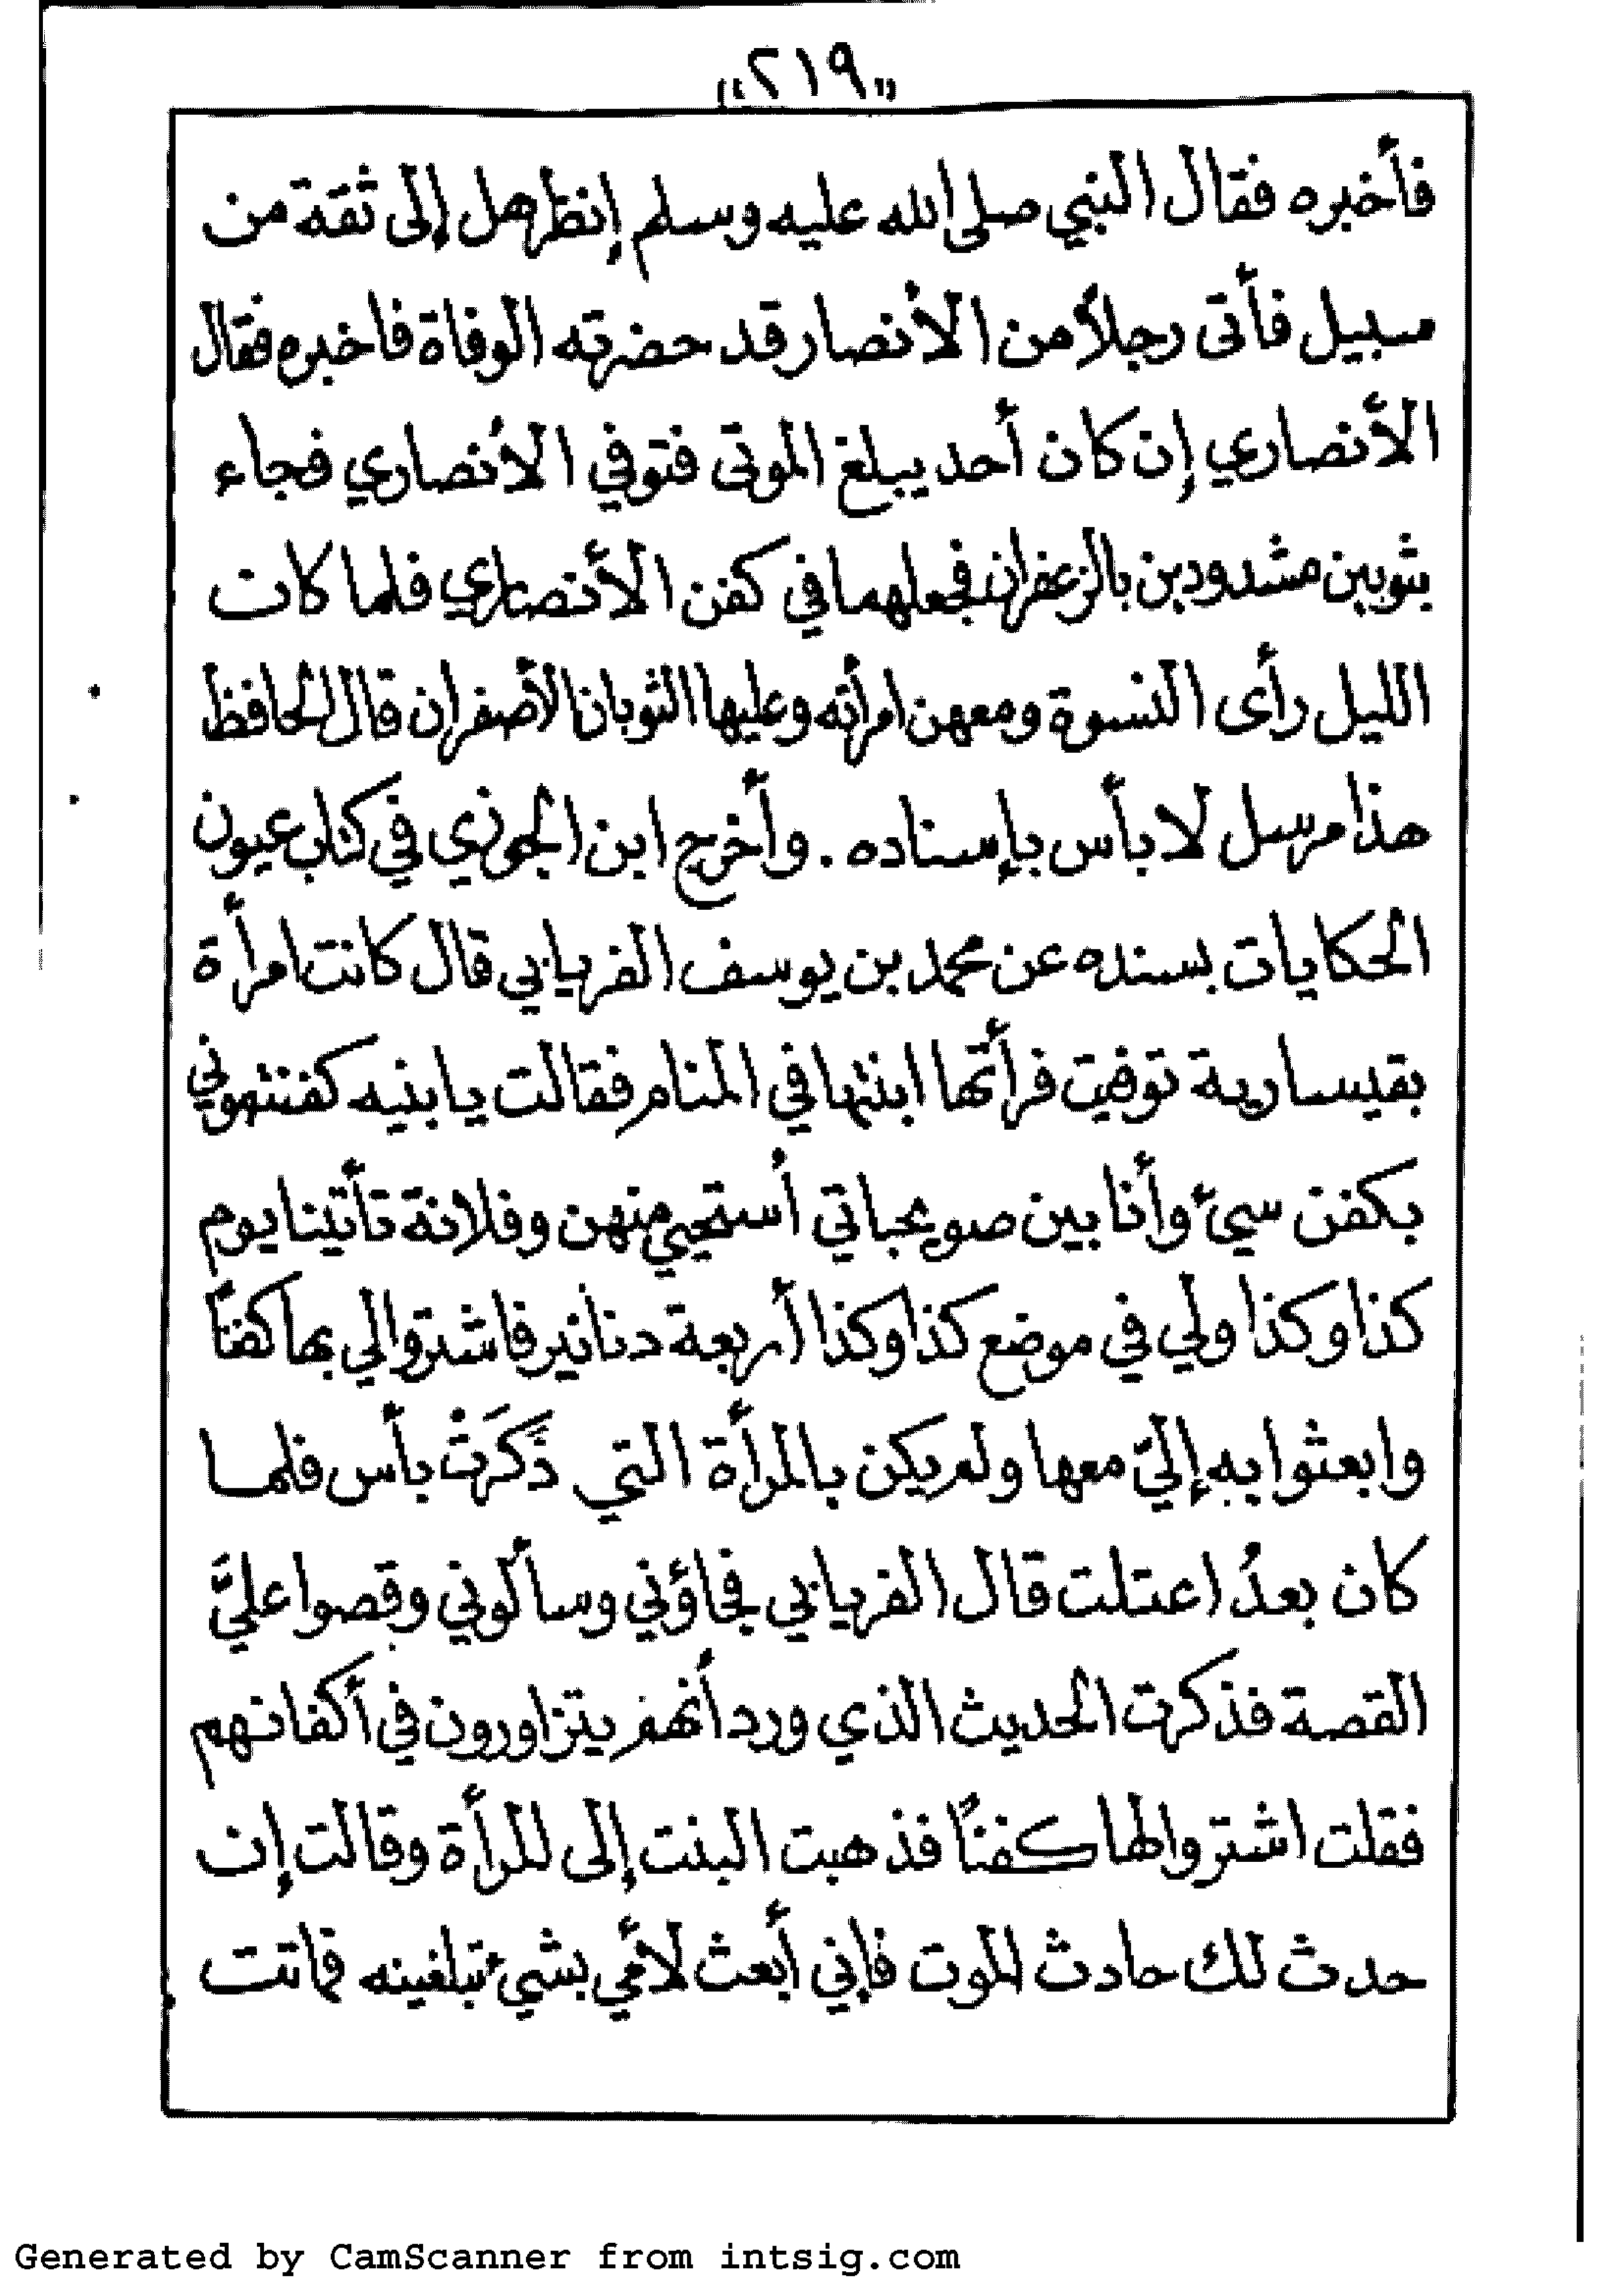 "٢١٩"
فأخبره فقال النبي صلى الله عليه وسلم إنظر هل إلى ثقة من
سبيل فأتى رجلاً من الأنصار قد حضرته الوفاة فاخبره فقال
الأنصاري إن كان أحد يبلغ الموتى فتوفي الأنصاري فجاء
بثوبين مشدودين بالزعفران فجعلهما في كفن الأنصاري فلما كان
الليل رأى النسوة ومعهن امرأته وعليها الثوبان الأصفران قال الحافظ
هذا مرسل لا بأس بإسناده. وأخرج ابن الجوزي في كتاب عيون
الحكايات بسنده عن محمد بن يوسف الفريابي قال كانت امرأة
بقيسارية توفيت فرأتها ابنتها في المنام فقالت يا بنيه كفنتموني
بكفن سيئ وأنا بين صويحباتي أستحيي منهن وفلانة تأتينا يوم
كذا وكذا ولي في موضع كذا وكذا أربعة دنانير فاشتروا لي بها كفناً
وابعثوا به إليّ معها ولم يكن بالمرأة التي ذَكَرَتْ بأس فلما
كان بعدُ اعتلت قال الفريابي فجاؤني وسألوني وقصوا عليَّ
القصة فذكرت الحديث الذي ورد أنهم يتزاورون في أكفانهم
فقلت اشتروا لها كفناً فذهبت البنت إلى للمرأة وقالت إن
حدث لك حادث الموت فإني أبعث لأمي بشيء تبلغينه فماتت
Generated by CamScanner from intsig.com